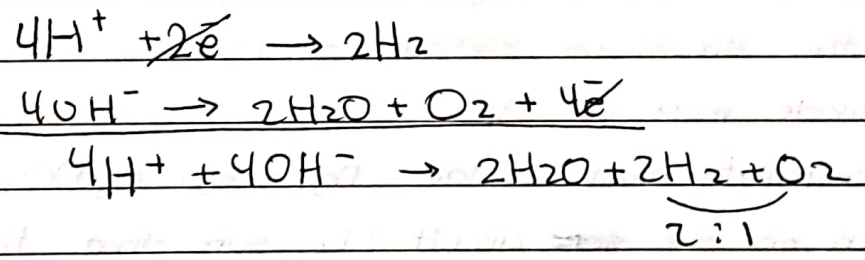 4H⁺ + 2e̅ → 2H₂
4OH⁻ → 2H₂O + O₂ + 4e̅
4H⁺ + 4OH⁻ → 2H₂O + 2H₂ + O₂
2 : 1